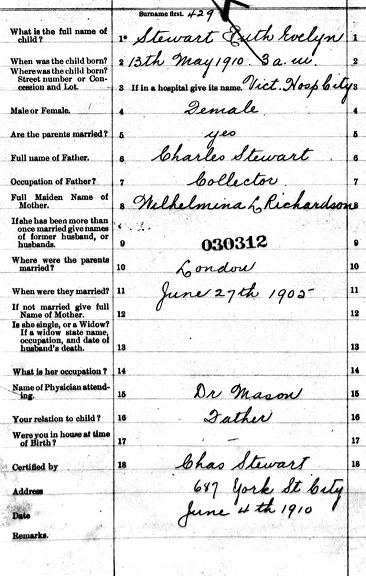 Surname first. 429
What is the full name of child? 1* Stewart Ruth Evelyn 1
When was the child born? 2 13th May 1910. 3 a.m. 2
Where was the child born? Street number or Concession and Lot. 3 If in a hospital give its name. Vict. Hosp City 3
Male or Female. 4 Female 4
Are the parents married? 5 yes 5
Full name of Father. 6 Charles Stewart 6
Occupation of Father? 7 Collector 7
Full Maiden Name of Mother. 8 Wilhelmina L Richardson 8
If she has been more than once married give names of former husband, or husbands. 9 030312 9
Where were the parents married? 10 London 10
When were they married? 11 June 27th 1905 11
If not married give full Name of Mother. 12 12
Is she single, or a Widow? If a widow state name, occupation, and date of husband's death. 13 13
What is her occupation? 14 14
Name of Physician attending. 15 Dr Mason 15
Your relation to child? 16 Father 16
Were you in house at time of Birth? 17 – 17
Certified by 18 Chas Stewart 18
Address 687 York St City
Date June 4th 1910
Remarks.